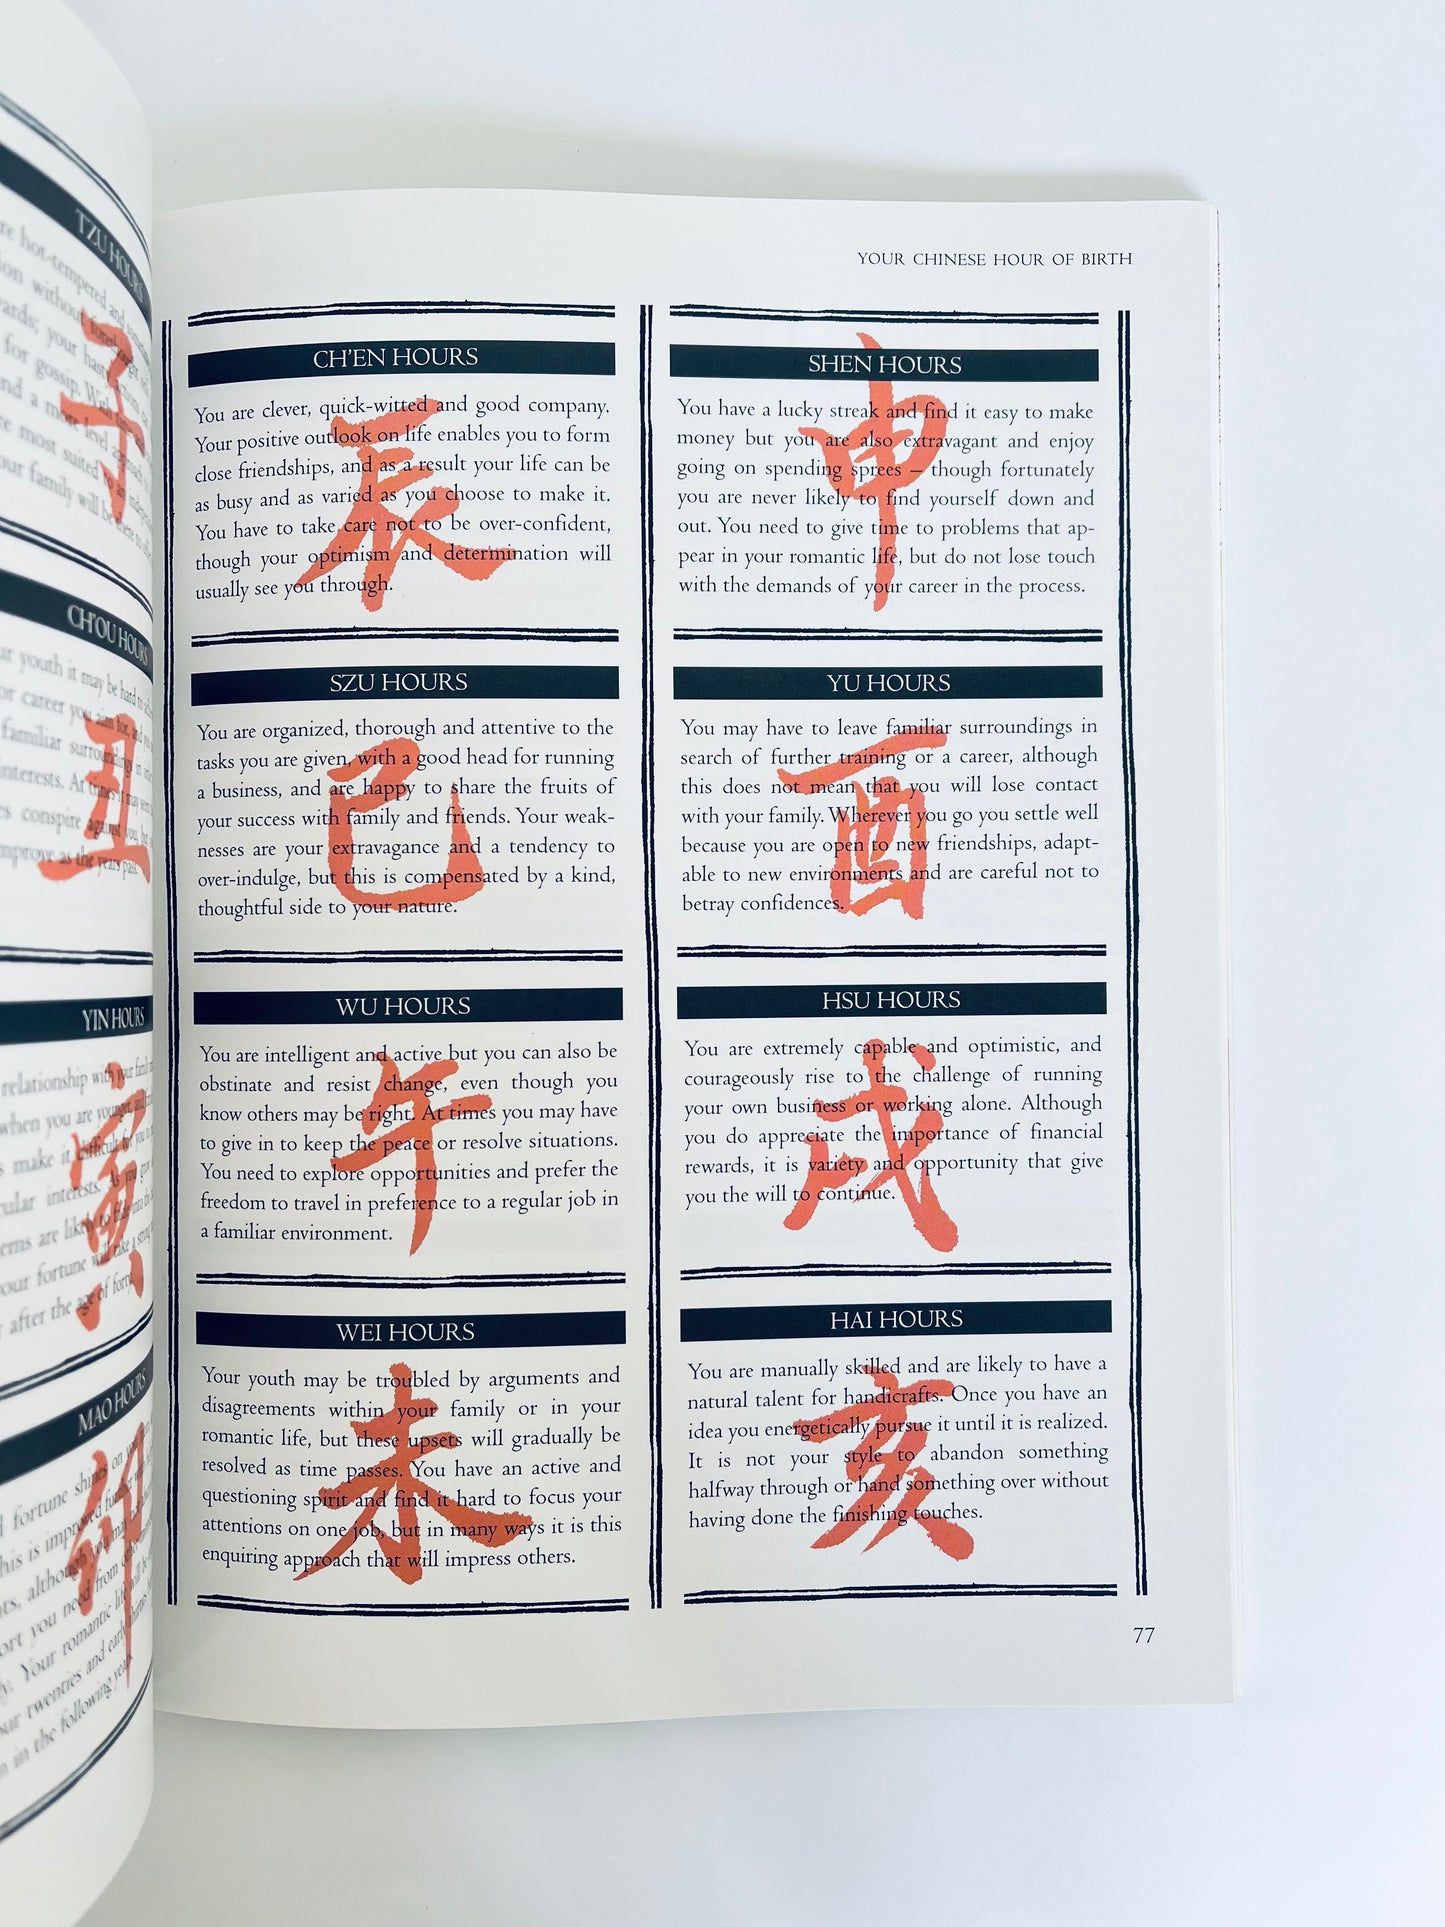 TZU HOURS
子
CH'OU HOURS
丑
YIN HOURS
寅
MAO HOURS
卯
YOUR CHINESE HOUR OF BIRTH
CH'EN HOURS
辰
You are clever, quick-witted and good company.
Your positive outlook on life enables you to form
close friendships, and as a result your life can be
as busy and as varied as you choose to make it.
You have to take care not to be over-confident,
though your optimism and determination will
usually see you through.
SZU HOURS
巳
You are organized, thorough and attentive to the
tasks you are given, with a good head for running
a business, and are happy to share the fruits of
your success with family and friends. Your weak-
nesses are your extravagance and a tendency to
over-indulge, but this is compensated by a kind,
thoughtful side to your nature.
WU HOURS
午
You are intelligent and active but you can also be
obstinate and resist change, even though you
know others may be right. At times you may have
to give in to keep the peace or resolve situations.
You need to explore opportunities and prefer the
freedom to travel in preference to a regular job in
a familiar environment.
WEI HOURS
未
Your youth may be troubled by arguments and
disagreements within your family or in your
romantic life, but these upsets will gradually be
resolved as time passes. You have an active and
questioning spirit and find it hard to focus your
attentions on one job, but in many ways it is this
enquiring approach that will impress others.
SHEN HOURS
申
You have a lucky streak and find it easy to make
money but you are also extravagant and enjoy
going on spending sprees – though fortunately
you are never likely to find yourself down and
out. You need to give time to problems that ap-
pear in your romantic life, but do not lose touch
with the demands of your career in the process.
YU HOURS
酉
You may have to leave familiar surroundings in
search of further training or a career, although
this does not mean that you will lose contact
with your family. Wherever you go you settle well
because you are open to new friendships, adapt-
able to new environments and are careful not to
betray confidences.
HSU HOURS
戌
You are extremely capable and optimistic, and
courageously rise to the challenge of running
your own business or working alone. Although
you do appreciate the importance of financial
rewards, it is variety and opportunity that give
you the will to continue.
HAI HOURS
亥
You are manually skilled and are likely to have a
natural talent for handicrafts. Once you have an
idea you energetically pursue it until it is realized.
It is not your style to abandon something
halfway through or hand something over without
having done the finishing touches.
77